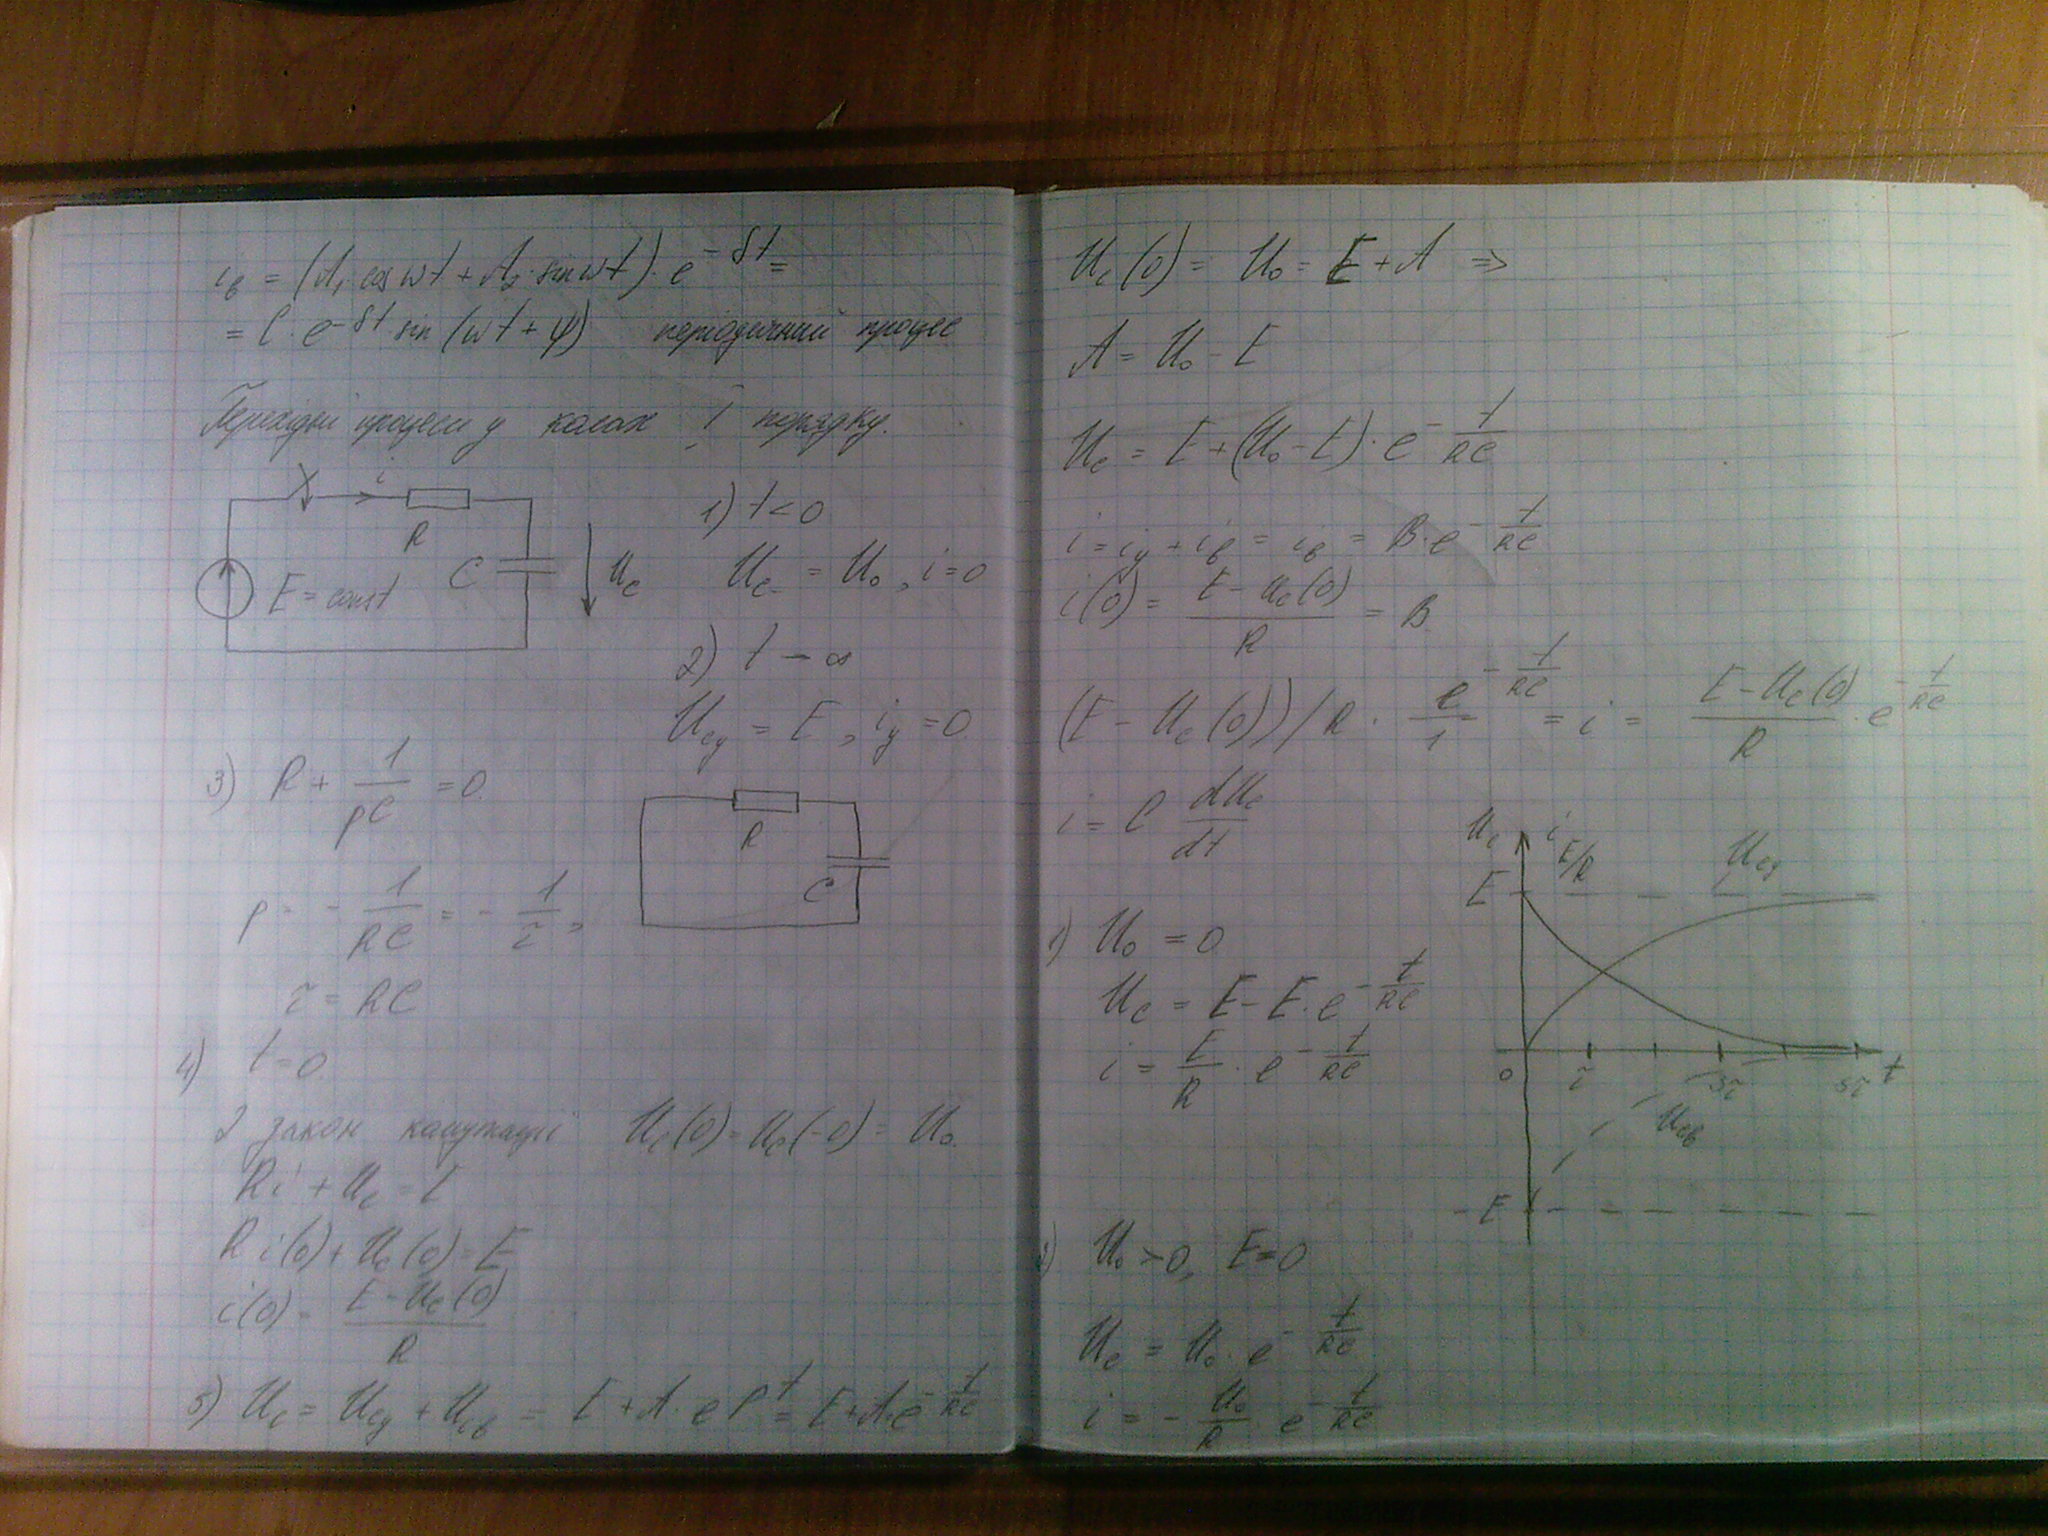 i_в = (A₁ cos wt + A₂ · sin wt) · e^(-δt) =
= C · e^(-δt) sin (wt + ψ) періодичний процес
Перехідні процеси у колах I порядку.
i
R
C
E = const
u_c
1) t < 0
U_c = U₀, i = 0
2) t → ∞
U_cy = E, i_y = 0
3) R + 1/(pC) = 0
R
C
p = - 1/(RC) = - 1/τ,
τ = RC
4) t = 0
2 закон комутації U_c(0) = U_c(-0) = U₀.
Ri + U_c = E
Ri(0) + U_c(0) = E
i(0) = (E - U_c(0))/R
5) U_c = U_cy + U_cв = E + A · e^(pt) = E + A · e^(-t/RC)
U_c(0) = U₀ = E + A ⇒
A = U₀ - E
U_c = E + (U₀ - E) · e^(-t/RC)
i = i_y + i_в = i_в = B · e^(-t/RC)
i(0) = (E - U_c(0))/R = B
(E - U_c(0))/R · e^(-t/RC)/1 = i = (E - U_c(0))/R · e^(-t/RC)
i = C dU_c/dt
U_c i
E E/R U_cy
0 τ 3τ 5τ t
U_cв
-E
1) U₀ = 0
U_c = E - E · e^(-t/RC)
i = E/R · e^(-t/RC)
2) U₀ > 0, E = 0
U_c = U₀ · e^(-t/RC)
i = - U₀/R · e^(-t/RC)